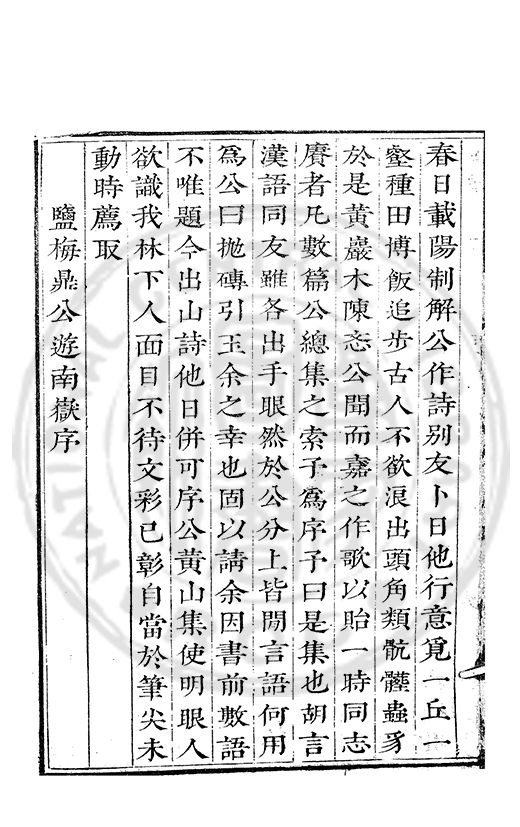 春日載陽制解公作詩別友卜日他行意覓一丘一
壑種田博飯追步古人不欲浪出頭角類骯髒蟲豸
於是黃巖木陳忞公聞而嘉之作歌以貽一時同志
賡者凡數篇公總集之索予為序予曰是集也胡言
漢語同友雖各出手眼然於公分上皆閒言語何用
為公曰拋磚引玉余之幸也固以請余因書前數語
不唯題今出山詩他日併可序公黃山集使明眼人
欲識我林下人面目不待文彩已彰自當於筆尖未
動時薦取
鹽梅鼎公遊南嶽序